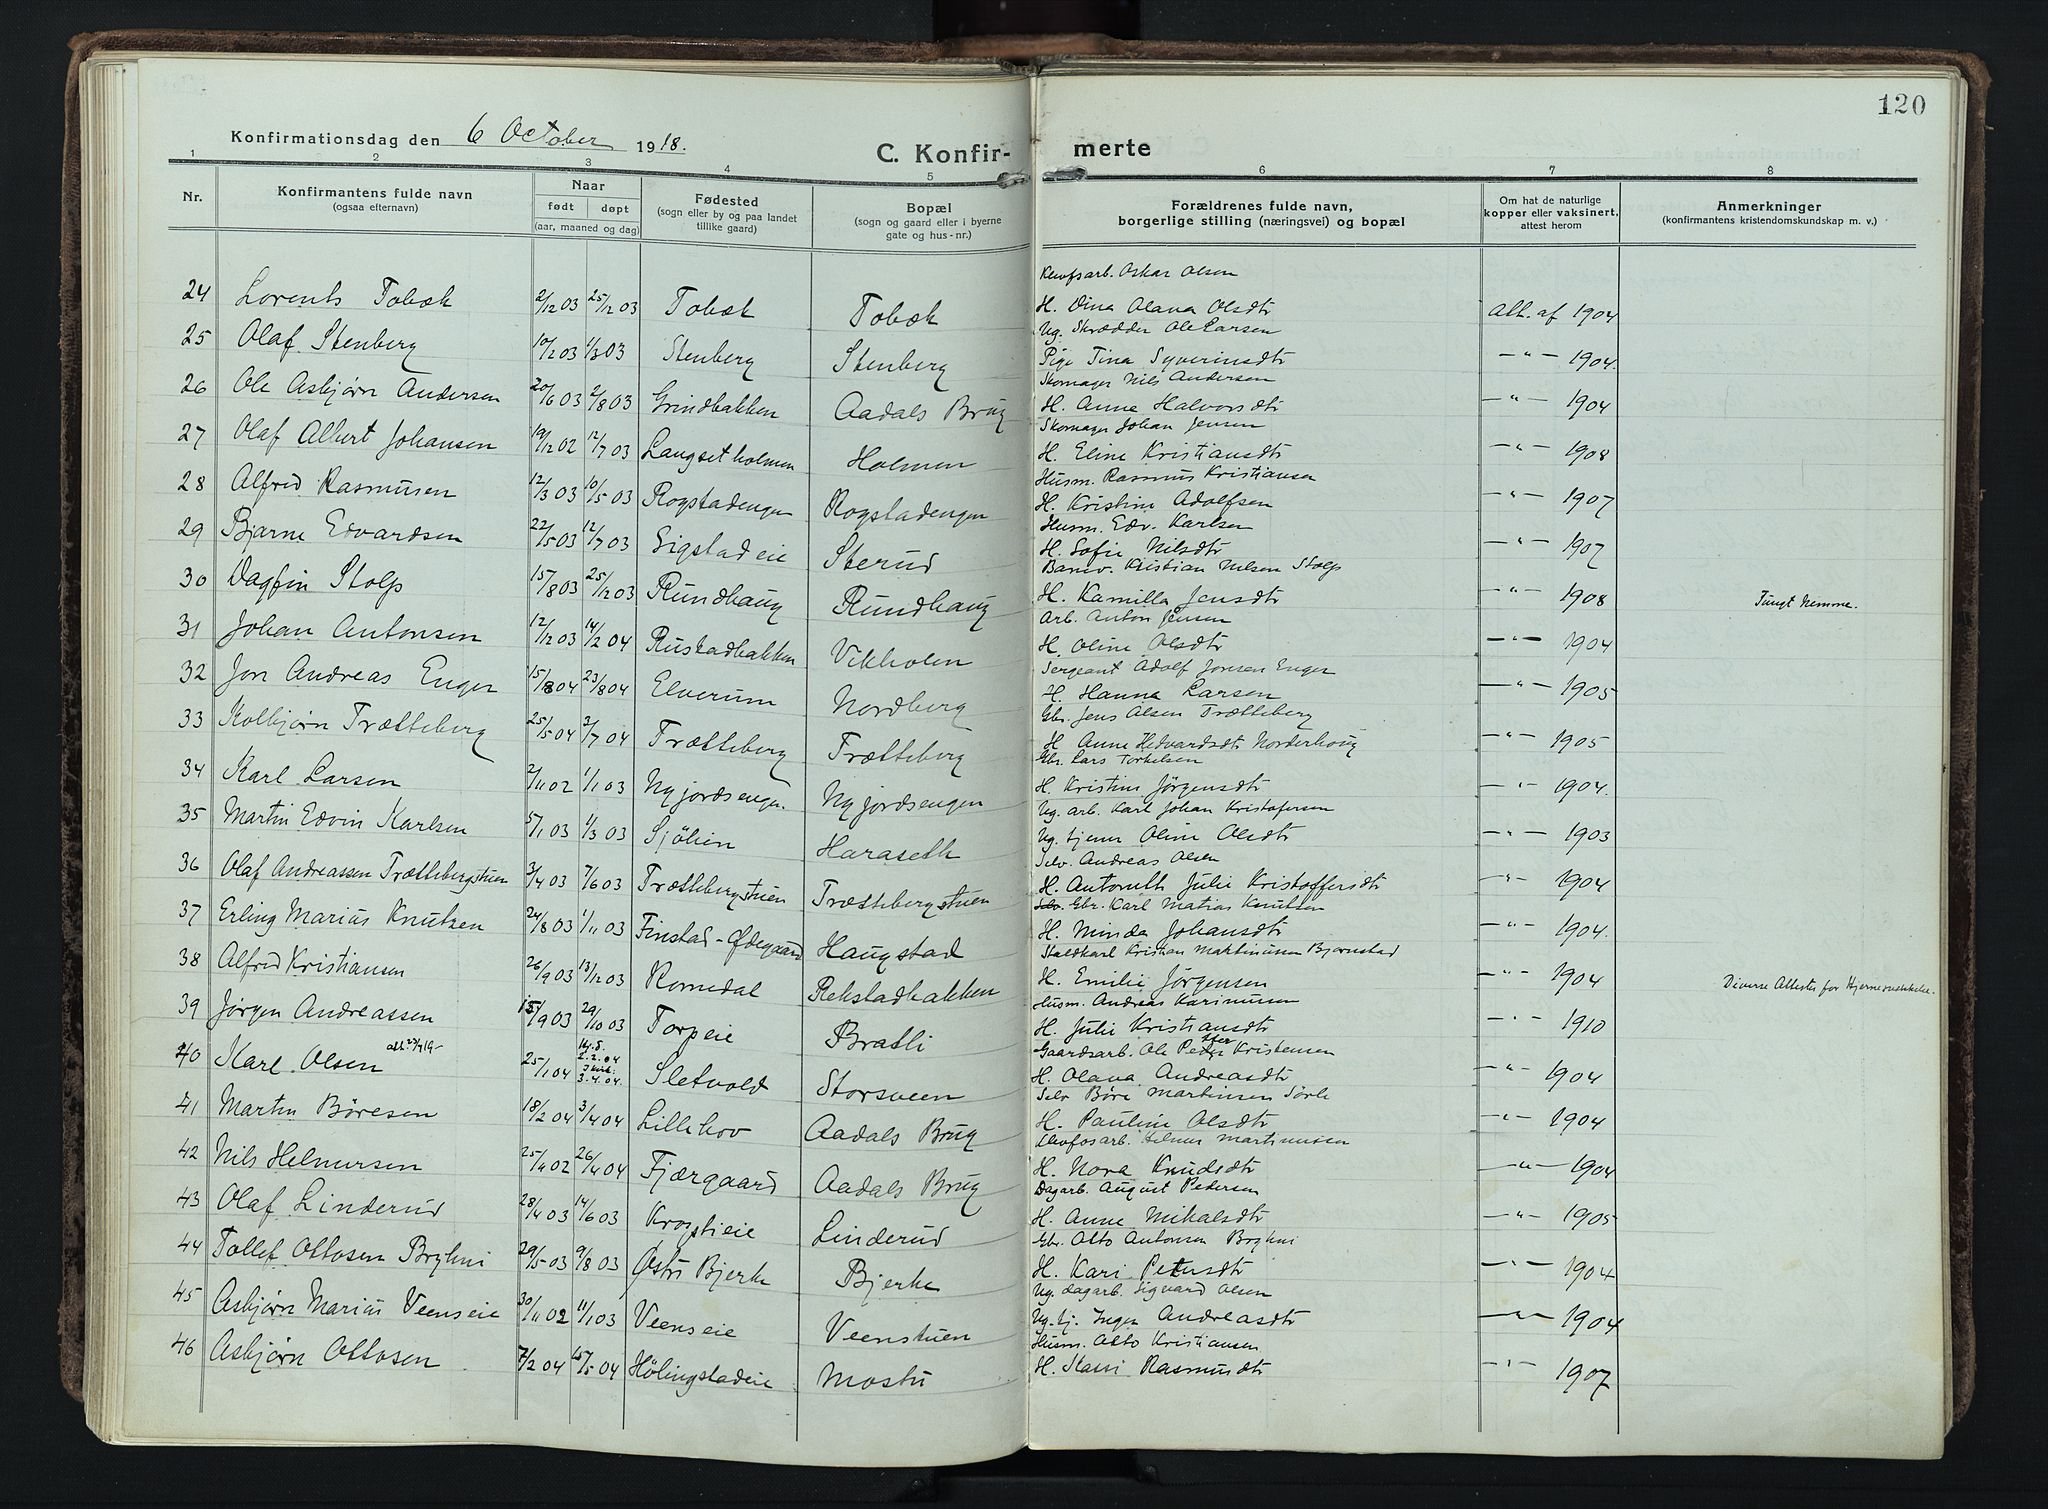 120
Konfirmationsdag den 6 October 1918.
C. Konfir- merte
1 2 3 4 5 6 7 8
Nr.
Konfirmantens fulde navn
(ogsaa efternavn)
Naar
født døpt
(aar, maaned og dag)
Fødested
(sogn eller by og paa landet
tillike gaard)
Bopæl
(sogn og gaard eller i byerne
gate og hus-nr.)
Forældrenes fulde navn,
borgerlige stilling (næringsvei) og bopæl
Om hat de naturlige
kopper eller vaksinert,
attest herom
Anmerkninger
(konfirmantens kristendomskundskap m. v.)
Klevfosarb. Oskar Olsen
24 Lorents Tobæk 2/12 03 25/12 03 Tobæk Tobæk H. Dina Olava Olsdtr Att. af 1904
Ug. Skrædder Ole Larsen
25 Olaf Stenberg 10/2 03 1/3 03 Stenberg Stenberg Pige Tina Syverinsdtr -"- 1904.
Skomager Nils Andersen
26 Ole Asbjørn Andersen 20/6 03 2/8 03 Grindbakken Aadals Brug H. Anne Halvorsdtr -"- 1904
Skomager Johan Jensen
27 Olaf Albert Johansen 19/12 02 12/7 03 Langsetholmen Holmen H. Eline Kristiansdtr -"- 1908
Husm. Rasmus Kristiansen
28 Alfred Rasmusen 12/3 03 10/5 03 Rogstadengen Rogstadengen H. Kristine Adolfsen -"- 1907
Husm. Edv. Karlsen
29 Bjarne Edvardsen 22/5 03 12/7 03 Sigstadeie Sterud H. Sofie Nilsdtr -"- 1907
Banev. Kristian Nilsen Stolp
30 Dagfin Stolp 15/8 03 25/12 03 Rundhaug Rundhaug H. Kamilla Jensdtr -"- 1908 Tungt Nemme.
Arb. Anton Jensen
31 Johan Antonsen 12/12 03 14/2 04 Rustadbakken Vikholen H. Oline Olsdtr -"- 1904
Sergeant Adolf Jonsen Enger
32 Jon Andreas Enger 15/8 04 23/8 04 Elverum Nordberg H. Hanna Larsen -"- 1905
Gbr. Jens Olsen Trætteberg
33 Kolbjørn Trætteberg 25/5 04 2/7 04 Trætteberg Trætteberg H. Anne Hedvardsdtr Norderhoug -"- 1905
Gbr. Lars Torkelsen
34 Karl Larsen 2/11 02 1/1 03 Nyjordsengen. Nyjordsengen H. Kristine Jørgensdtr -"- 1904.
Ug. arb. Karl Johan Kristofersen
35 Martin Edvin Karlsen 5/1 03 1/3 03 Sjølien Haraseth Ug. tjener Oline Olsdtr -"- 1903
Selv. Andreas Olsen
36 Olaf Andreassen Trættebergstuen 3/4 03 7/6 03 Trættebergstuen Trættebergstuen H. Antonette Julie Kristoffersdtr -"- 1904
Selv. Gbr. Karl Matias Knutsen
37 Erling Marius Knutsen 24/8 03 1/11 03 Finstad-Ødegaard Haugstad H. Minda Johansdtr -"- 1904.
Staldkarl Kristian Martinusen Bjørnstad
38 Alfred Kristiansen 26/9 03 13/12 03 Romedal Rekstadbakken H. Emilie Jørgensen -"- 1904 Diverse Attester for Hjernesvækkelse.
Husm. Andreas Karinusen
39 Jørgen Andreassen 15/9 03 29/10 03 Torpeie Bratli H. Julie Kristiansdtr -"- 1910
Gaardsarb. Ole Petter Kristensen
40 Karl Olsen 25/1 04 Hj.d. 2.2.04 I kirk. 3.4.04. Sletvold Storsveen H. Olava Andreasdtr -"- 1904
Selv Børe Martinsen Sörli
41 Martin Børesen 18/2 04 3/4 04 Lillehov Aadals Brug H. Pauline Olsdtr -"- 1904
Klevfosarb. Helmer Martinusen
42 Nils Helmersen 25/11 02 26/4 04 Fjærgaard Aadals Brug H. Nora Knudsdtr -"- 1904
Dagarb. August Pedersen
43 Olaf Linderud 28/4 03 14/6 03 Krogstieie Linderud H. Anne Mikalsdtr -"- 1905
Gbr. Otto Antonsen Bryhni
44 Tollef Ottosen Bryhni 29/5 03 9/8 03 Østre Bjerke Bjerke H. Kari Petersdtr -"- 1904
Ug. dagarb. Sigvard Olsen
45 Asbjørn Marius Veenseie 30/11 02 11/1 03 Veenseie Veenstuen Ug. tj. Inger Andreasdtr -"- 1904
Husm. Otto Kristiansen
46 Asbjørn Ottosen 7/2 04 15/5 04 Hølingstadeie Mostu H. Kassi Rasmusdtr -"- 1907